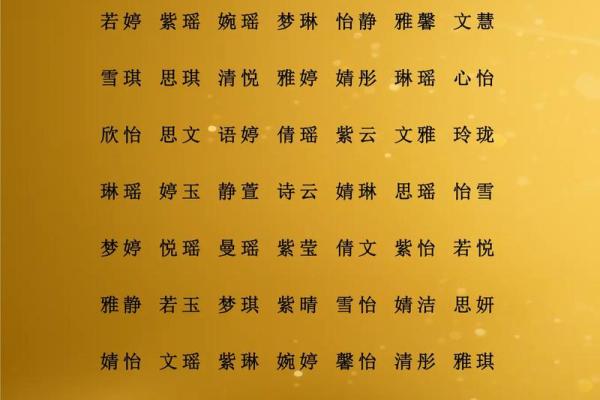 若婷 紫瑶 婉瑶 梦琳 怡静 雅馨 文慧
雪琪 思琪 清悦 雅婷 婧彤 琳瑶 心怡
欣怡 思文 语婷 倩瑶 紫云 文雅 玲珑
琳瑶 婷玉 静萱 诗云 婧琳 思瑶 怡雪
梦婷 悦瑶 曼瑶 紫莹 倩文 紫怡 若悦
雅静 若玉 梦琪 紫晴 雪怡 婧洁 思妍
婧怡 文瑶 紫琳 婉婷 馨怡 清彤 雅琪